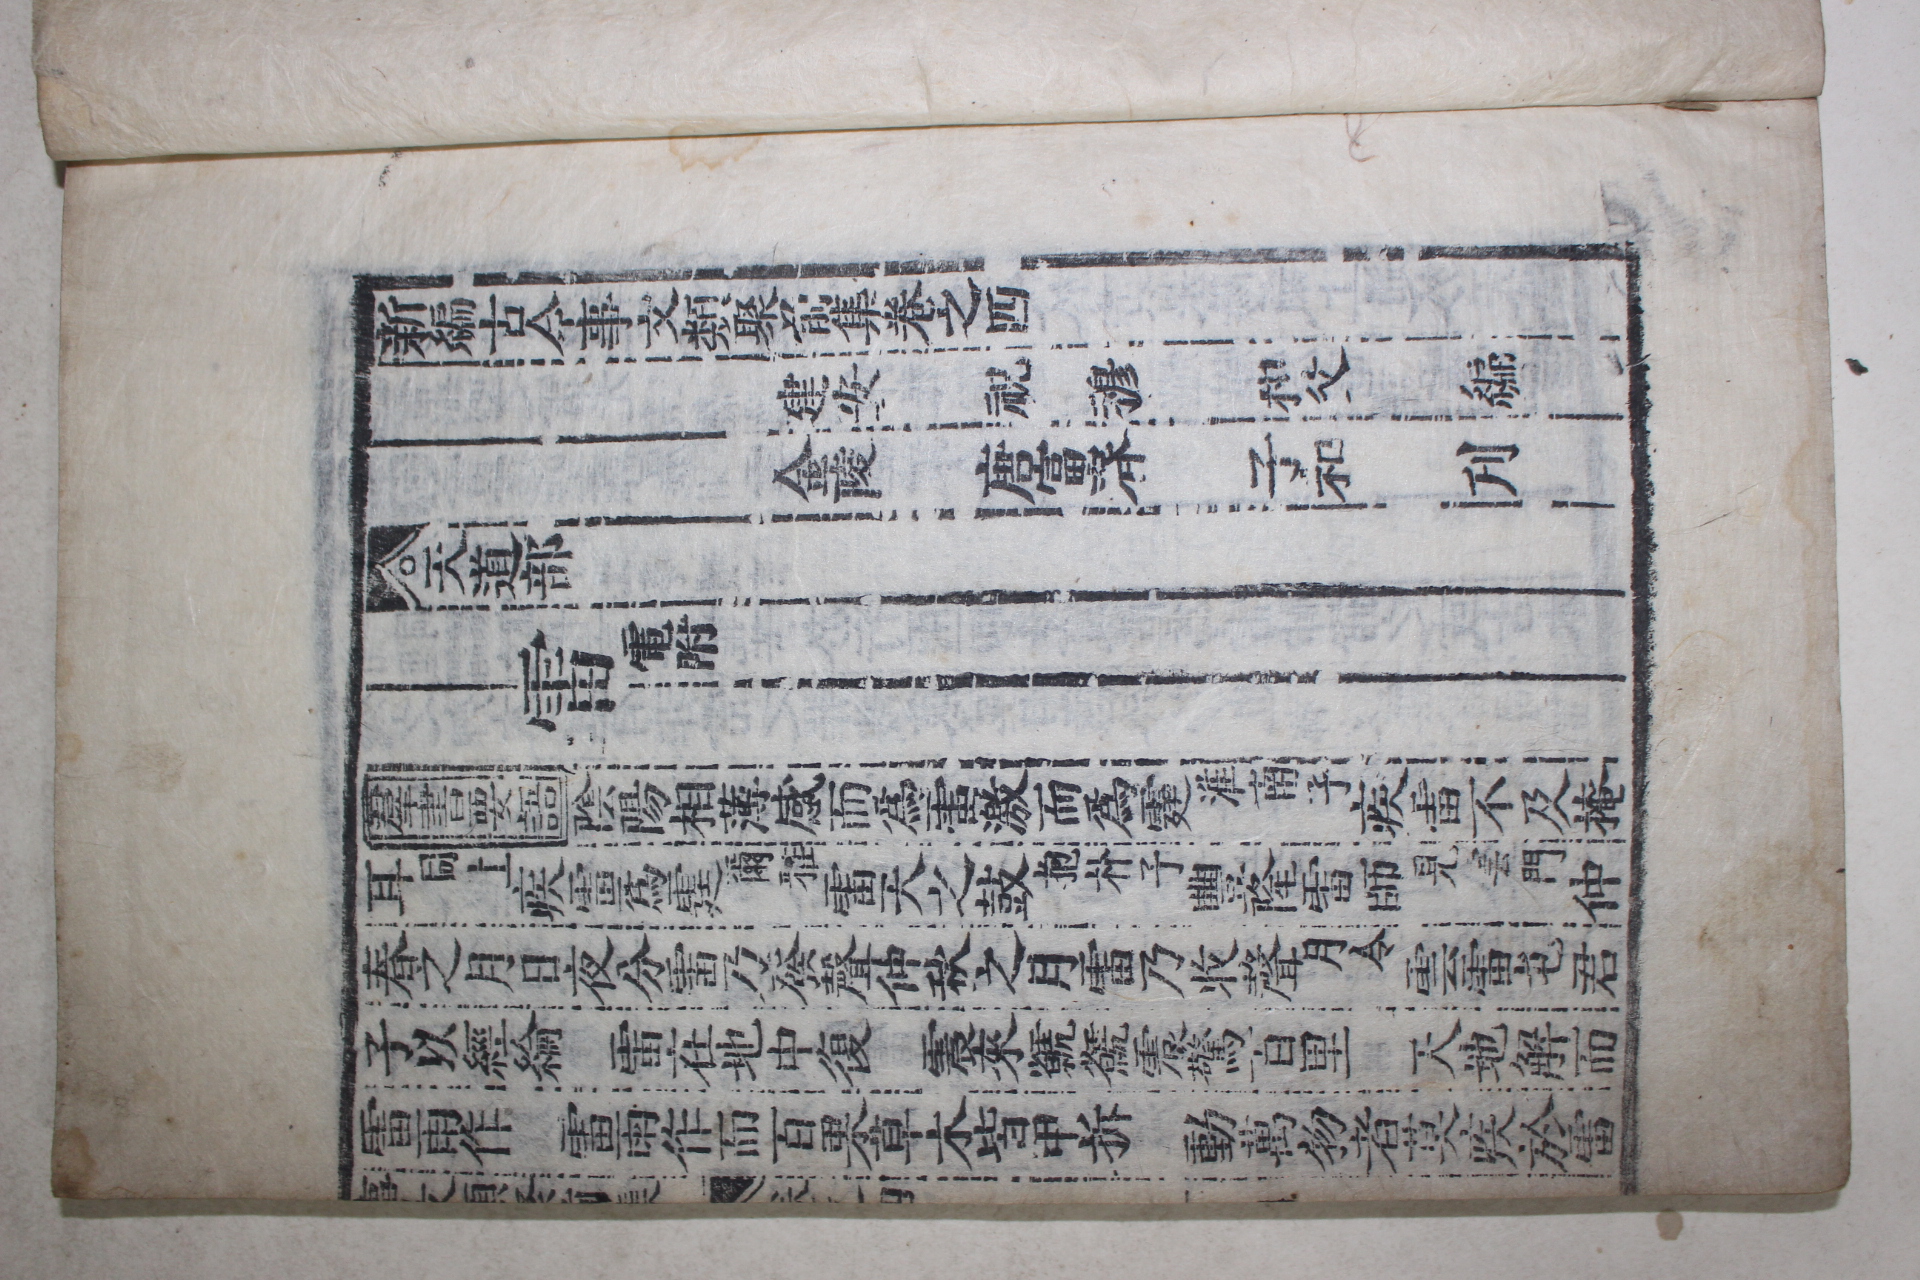 新編古今事文類聚前集卷之四
建安 祝 穆 和父 編
金陵 唐富春 子和 刊
○天道部
雷 電附
羣書要語 陰陽相薄感而爲雷激而爲霆 淮南子 疾雷不及掩
耳 同上 疾雷爲霆 爾雅 雷天之鼓 抱朴子 豐隆雷師 見雲門 仲
春之月日夜分雷乃發聲仲秋之月雷乃收聲 月令 雲雷屯君
子以經綸 雷在地中復 震來虩虩震驚百里 天地解而
雷雨作 雷雨作而百果草木皆甲拆 動萬物者莫疾於雷
事文類聚前集 卷之四